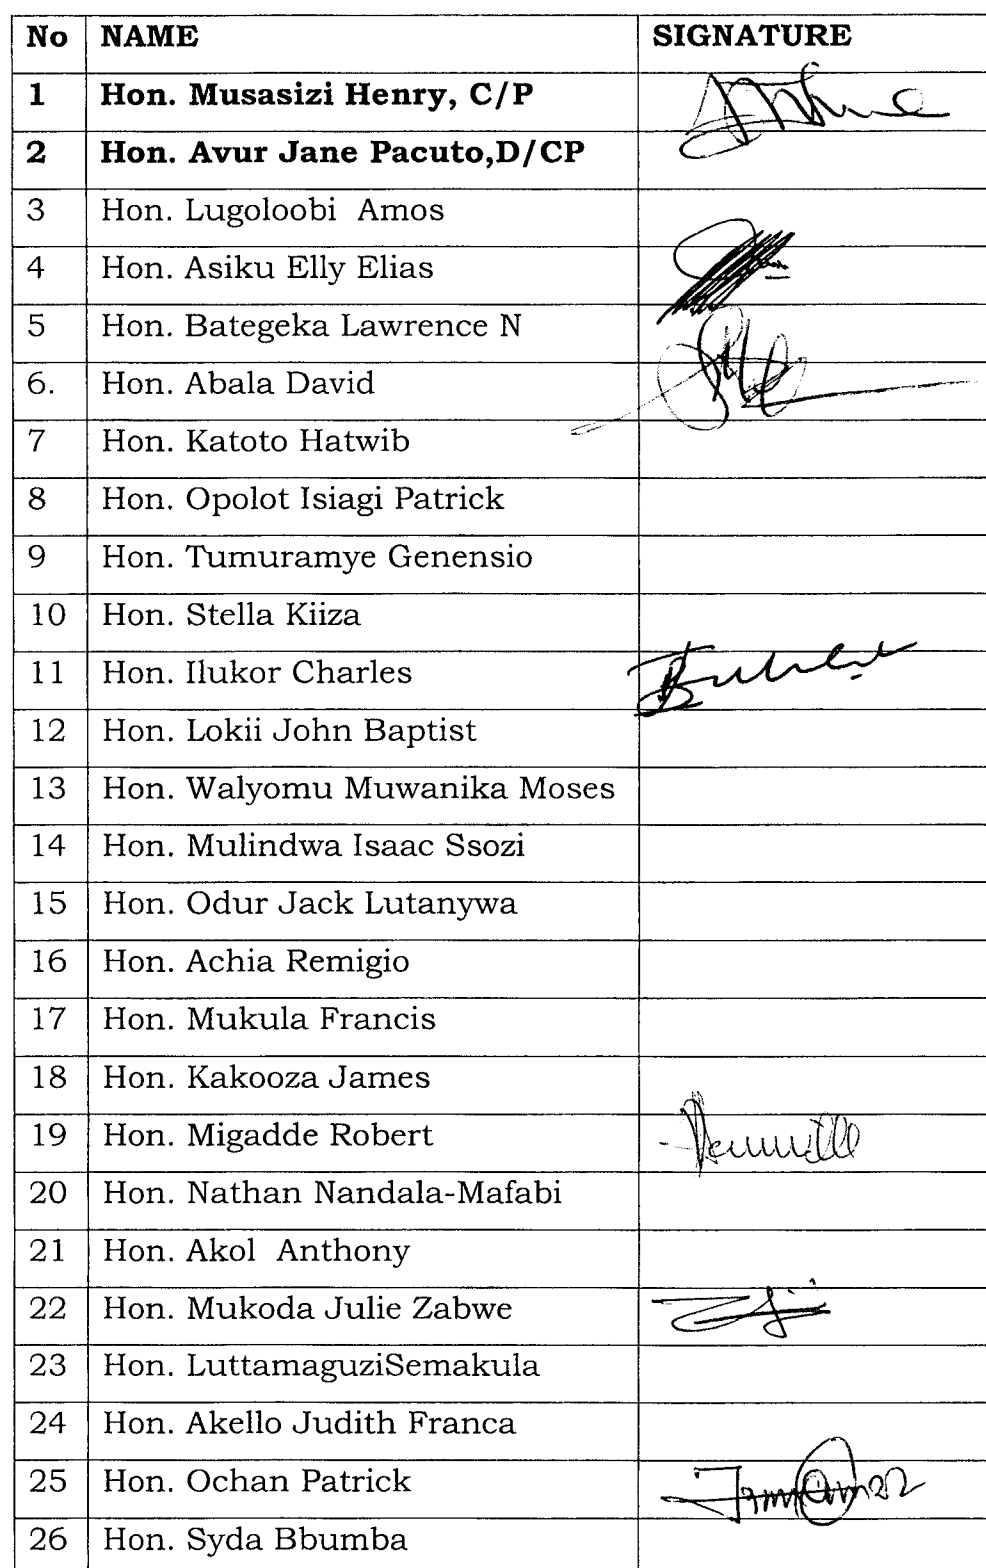 No NAME SIGNATURE
1 Hon. Musasizi Henry, C/P
2 Hon. Avur Jane Pacuto,D/CP
3 Hon. Lugoloobi Amos
4 Hon. Asiku Elly Elias
5 Hon. Bategeka Lawrence N
6. Hon. Abala David
7 Hon. Katoto Hatwib
8 Hon. Opolot Isiagi Patrick
9 Hon. Tumuramye Genensio
10 Hon. Stella Kiiza
11 Hon. Ilukor Charles
12 Hon. Lokii John Baptist
13 Hon. Walyomu Muwanika Moses
14 Hon. Mulindwa Isaac Ssozi
15 Hon. Odur Jack Lutanywa
16 Hon. Achia Remigio
17 Hon. Mukula Francis
18 Hon. Kakooza James
19 Hon. Migadde Robert
20 Hon. Nathan Nandala-Mafabi
21 Hon. Akol Anthony
22 Hon. Mukoda Julie Zabwe
23 Hon. LuttamaguziSemakula
24 Hon. Akello Judith Franca
25 Hon. Ochan Patrick
26 Hon. Syda Bbumba